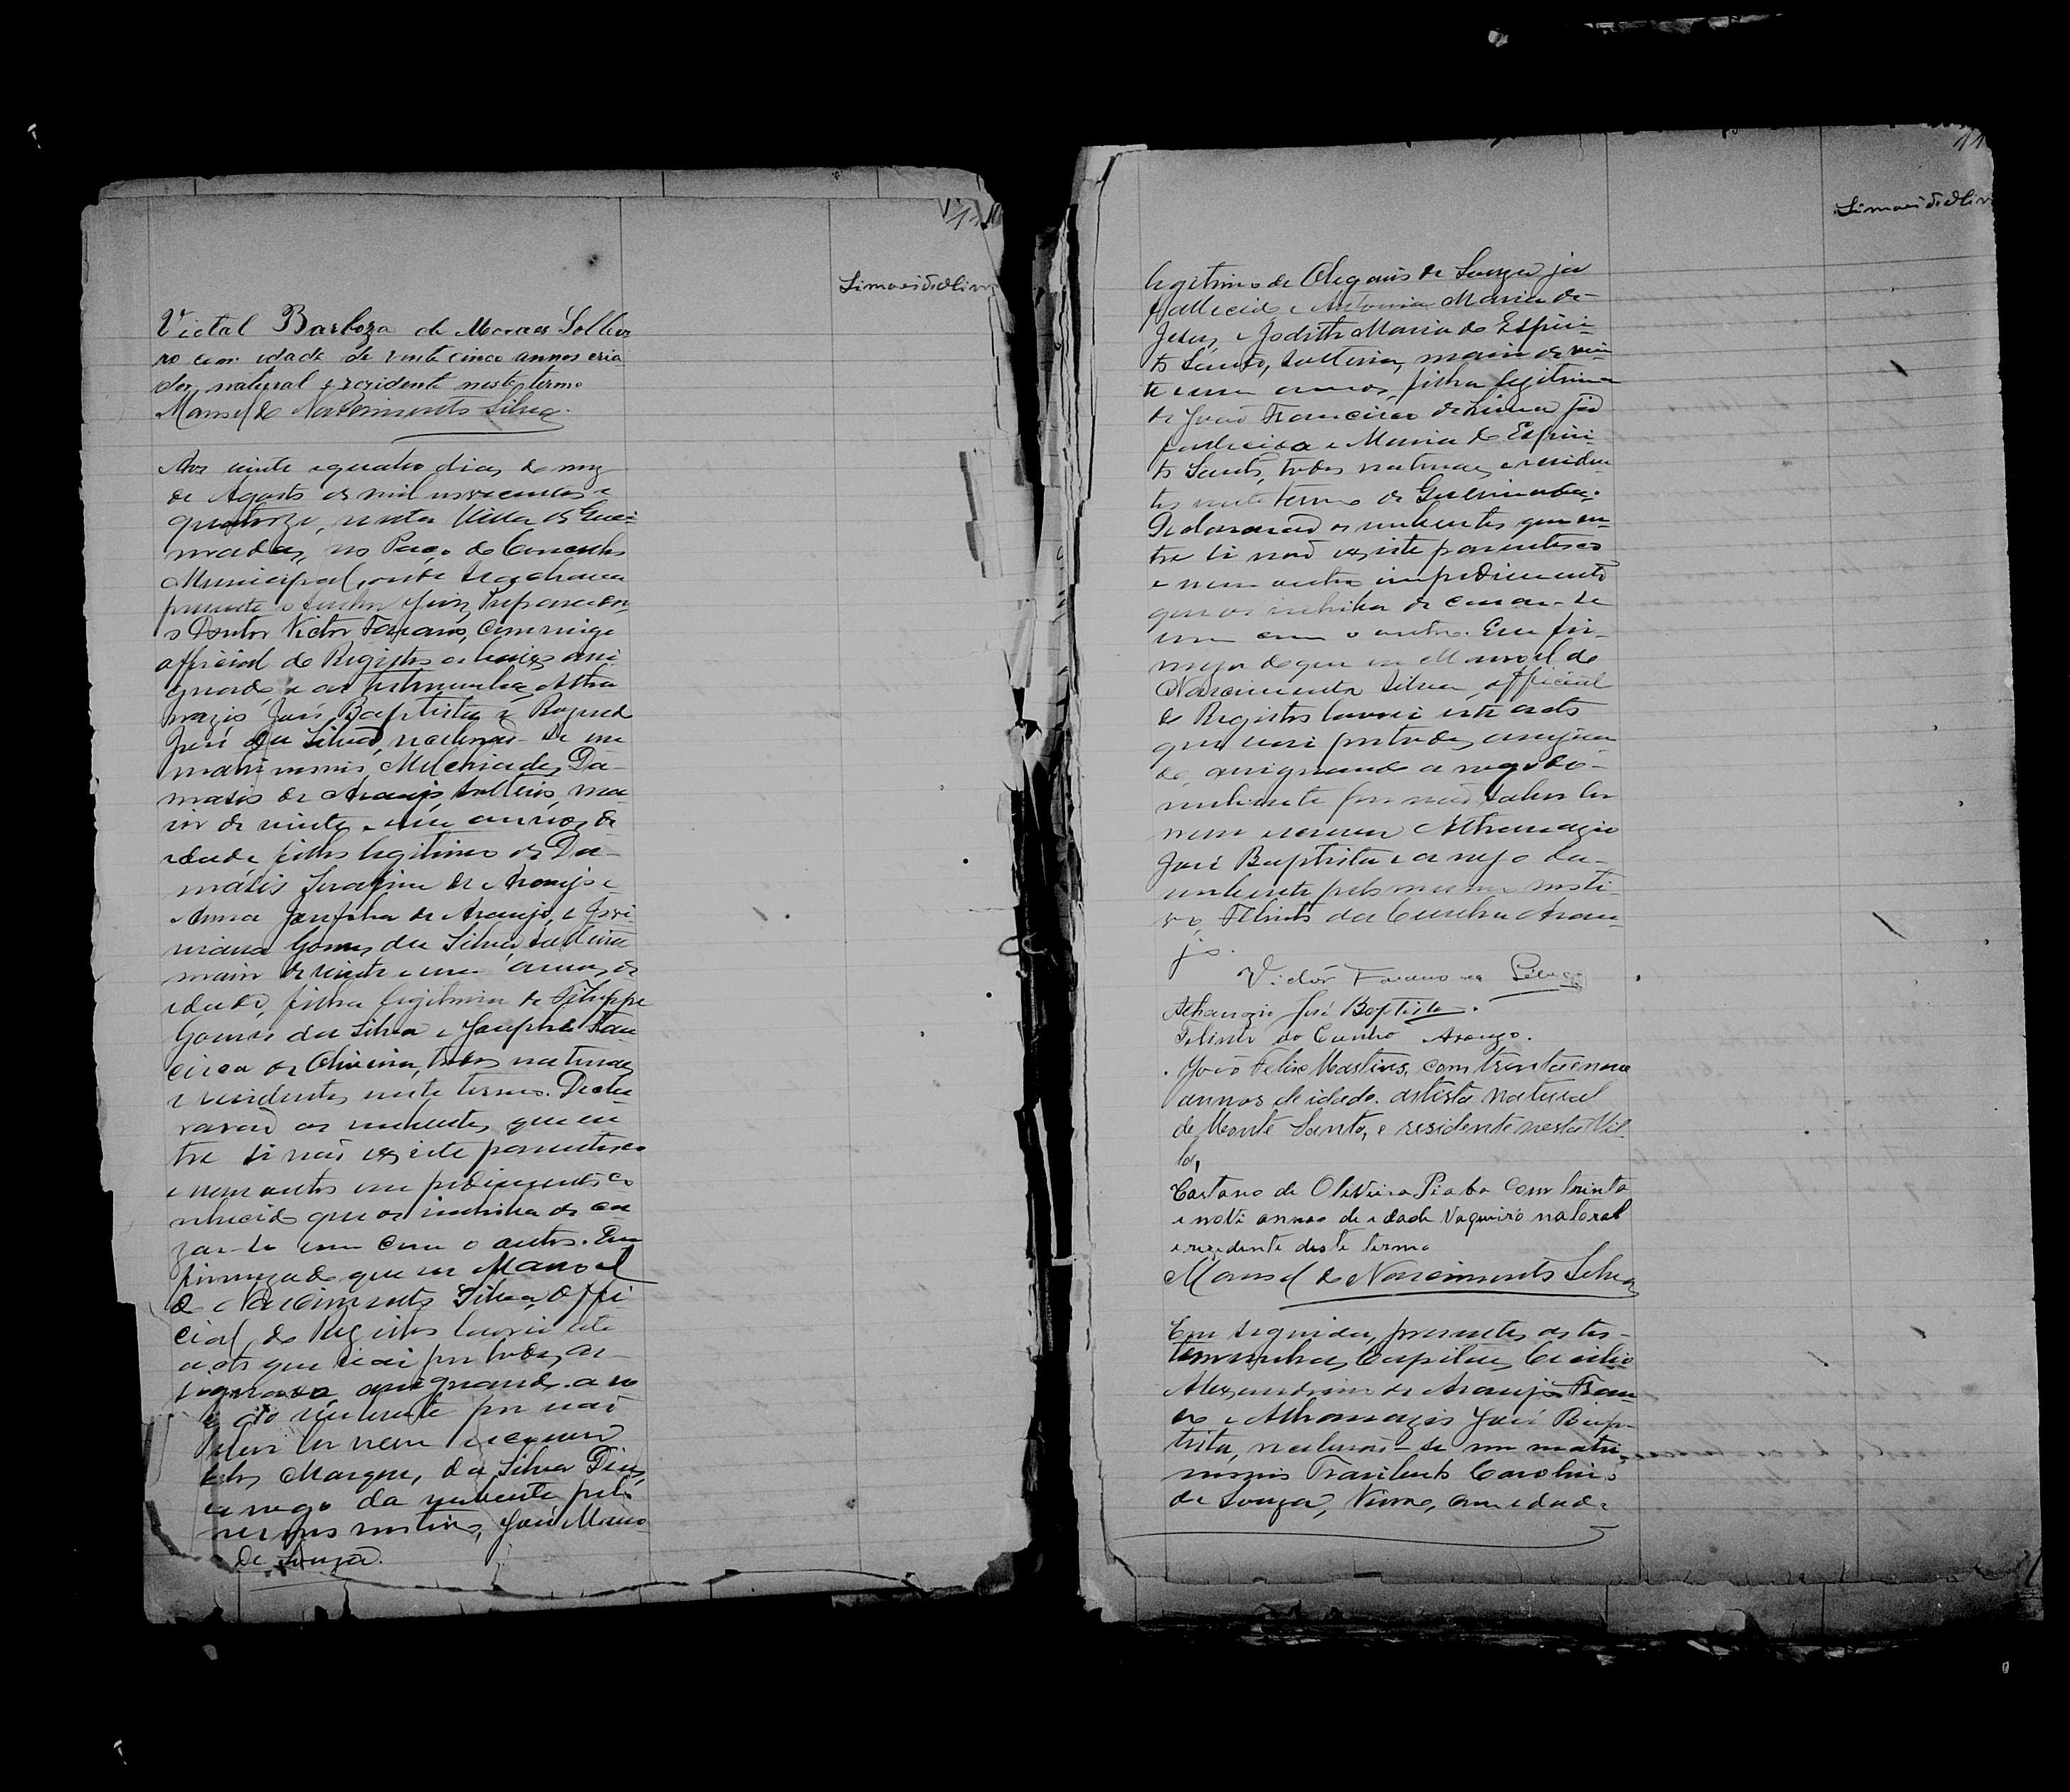 Simões d'Oliv
Victal Barboza de Moraes Soltei
ro com idade de vinte cinco annos cria
dor, natural e rezidente neste termo
Manoel do Nascimento Silva.
Aos vinte e quatro dias do mez
de Agosto de mil novecentos e
quatorze, nesta Villa de Quei-
madas, no Paço do Conselho
Municipal, onde se achava
presente o Senhor Juiz Preparador
o Doutor Victor Farano, commigo
official do Registro abaixo assi-
gnado, e as testemunhas Atha
nazio José Baptista e
José da Silva, receberão-se em
matrimonio, Melchiades Da-
masio de Araujo, solteiro, ma-
ior de vinte e um annos de
idade filho legitimo de Da-
masio Serafim de Araujo e
Anna Josepha de Araujo, e
Gomes da Silva, solteira
maior de vinte e um annos, de
idade, filha legitima de Felippe
Gomes da Silva e Josepha Fran
cisca de Oliveira, todos naturaes
e residentes neste termo. Decla
rarão os nubentes, que en
tre si não existe parentesco
e nem outro impedimento co
nhecido que os inhiba de ca
zar-se um com o outro. Em
firmeza do que eu Manoel
do Nascimento Silva, Offi
cial do Registro lavrei este
acto que vai por todos, as
signado, assignando a ro
go do nubente por não
saber ler nem escrever
Marques da Silva Dias,
a rogo da nubente pelo
mesmo motivo, José
de Souza.
11
Simões d'Oliv
legitimo de Olegario de Souza já
fallecido e Antonia Maria de
Jesus, e Jodith Maria do Espiri-
to Santo, solteira, maior de vin
te e um annos, filha legitima
de João Francisco de Lima já
fallecido e Maria do Espiri-
to Santo, todos naturaes e residen
tes neste termo de Queimadas.
Declararão os nubentes que en-
tre si não existe parentesco
e nem outro impedimento
que os inhiba de casar-se
um com o outro. Em fir-
meza do que eu Manoel do
Nascimento Silva, official
do Registro lavrei este acto
que vai por todos, assigna
do assignando a rogo do
nubente por não saber ler
nem escrever Athanazio
José Baptista e a rogo da
nubente pelo mesmo moti
vo, Felinto da Cunha Arau
jo.
Victor Farano da Silva
Athanazio José Baptista.
Felinto da Cunha Araujo.
João Felix Martins, com trinta e nove
annos de idade. artista natural
de Monte Santo, e residente nesta Vil
la,
Caetano de Oliveira Piaba com trinta
e nove annos de idade Vaqueiro natoral
e rezidente deste termo
Manoel do Nascimento Silva
Em seguida, presentes as tes-
temunhas, Capitão Cicilio
Alexandrino de Araujo
e Athanazio José Bap-
tista, receberão-se em matri-
monio Trasibulo Carolino
de Souza, Viuvo, com idade